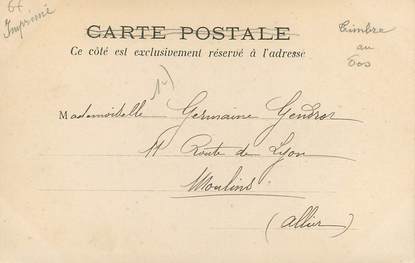 Imprimé
CARTE POSTALE
Timbre
au
Dos
Ce côté est exclusivement réservé à l'adresse
Mademoiselle Germaine Gendrot
11 Route de Lyon
Moulins
(Allier)